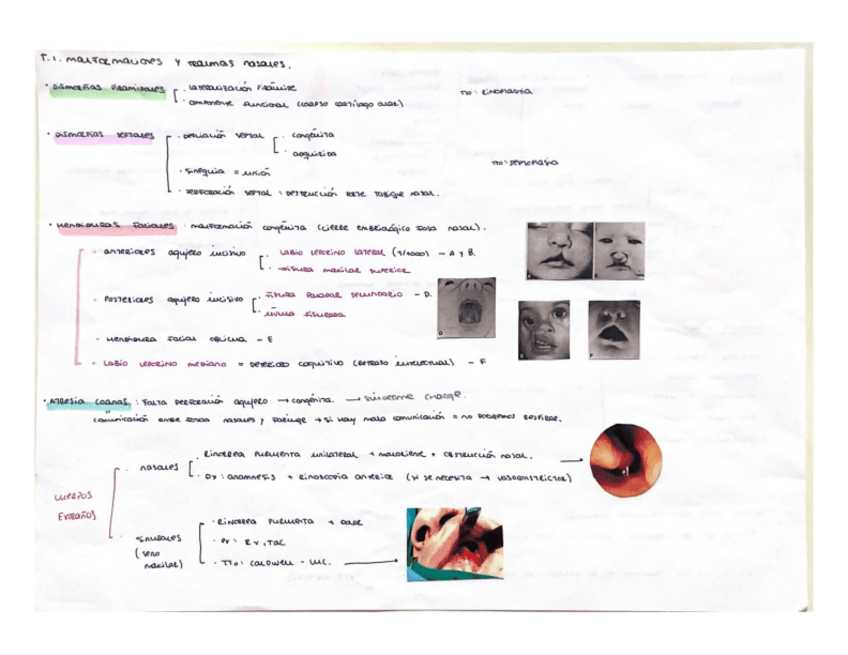 T.1. malformaciones y traumas nasales.
· Dismorfias piramidales
· lateralización pirámide
· componente funcional (colapso cartílago alar)
TTO: Rinoplastia
· Dismorfias septales
· Desviación septal
· congénita
· adquirida
· Sinequia = unión
TTO: Septoplastia
· Perforación septal: destrucción parte tabique nasal.
· Hendiduras faciales: malformación congénita (cierre embriológico fosa nasal).
· anteriores agujero incisivo
· labio leporino lateral (1/1000) - A y B.
· fisura maxilar superior
· Posteriores agujero incisivo
· fisura paladar secundario - D.
· úvula fisurada
· Hendidura facial oblicua - E
· labio leporino mediano = deterioro cognitivo (retraso intelectual) - F
D
E
F
· Atresia coanas: Falta perforación agujero → congénita. → síndrome CHARGE.
comunicación entre fosas nasales y faringe → si hay mala comunicación = no podremos respirar.
CUERPOS EXTRAÑOS
· nasales
· Rinorrea purulenta unilateral + maloliente + obstrucción nasal.
· Dx: anamnesis + rinoscopia anterior (si se necesita → vasoconstrictor)
· sinusales (seno maxilar)
· Rinorrea purulenta + dolor
· Dx: RX, TAC
· TTO: Caldwell - Luc.